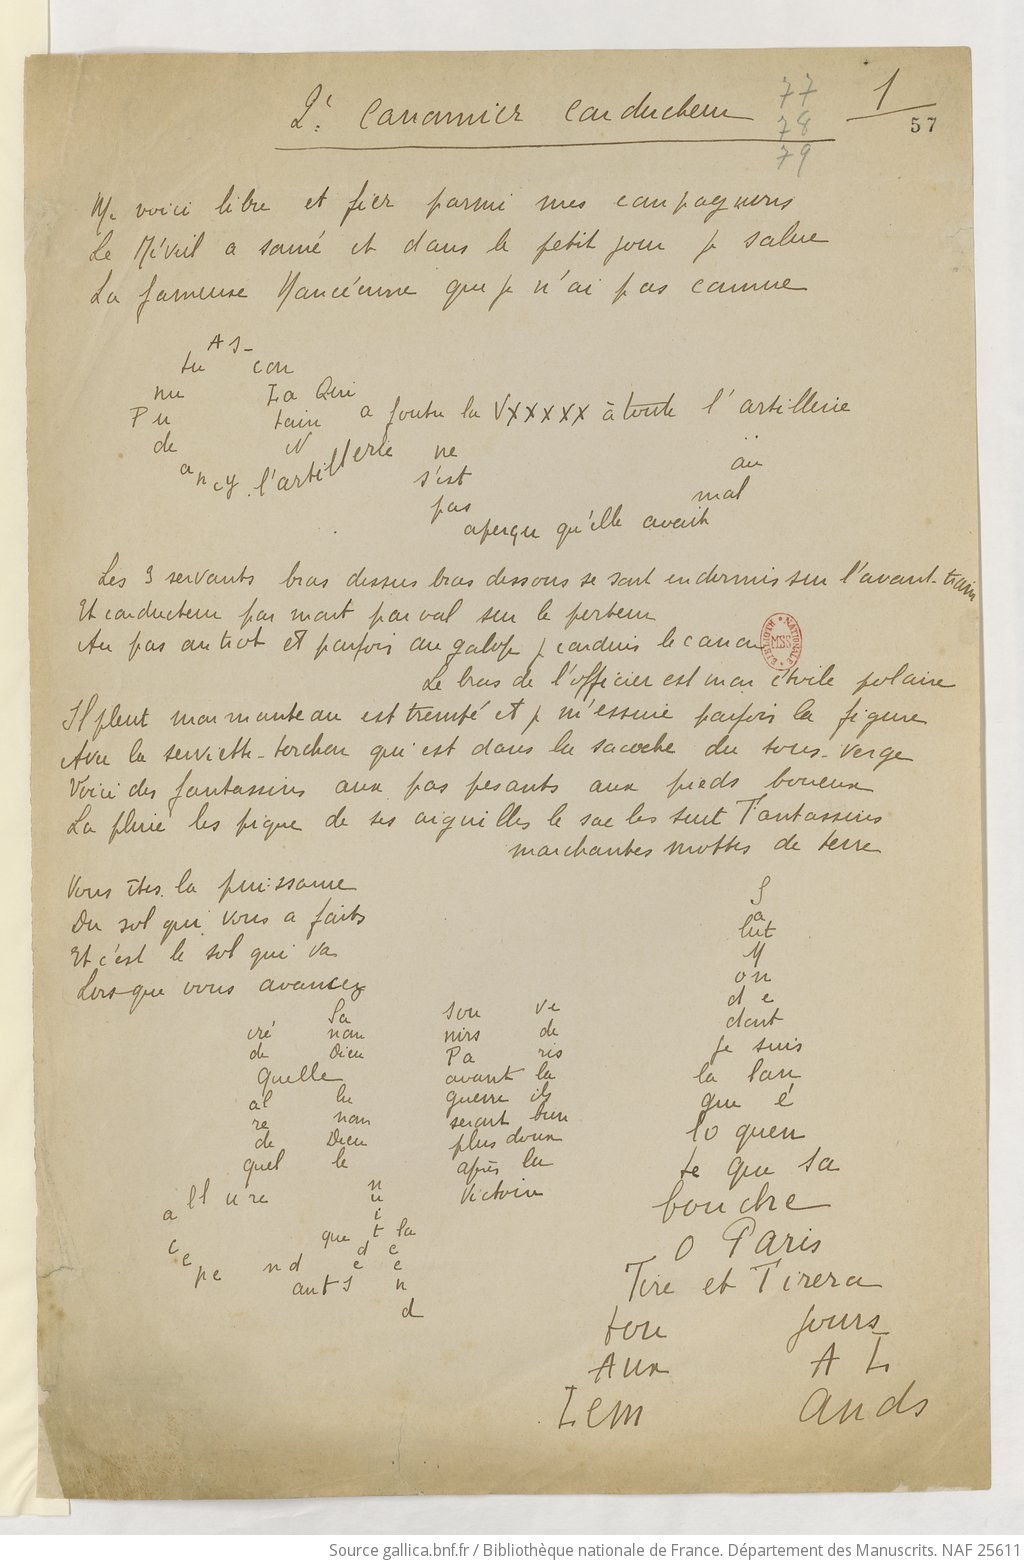 2e canonnier conducteur
77
78
79
1
57
Me voici libre et fier parmi mes compagnons
Le Réveil a sonné et dans le petit jour je salue
La fameuse Nancéenne que je n'ai pas connue
AS-
tu con
nu La Qui
Pu tain a foutu la VXXXXX à toute l'artillerie
de N
ancy l'artillerie ne
s'est
pas
aperçu qu'elle avait
mal
au
Les 3 servants bras dessus bras dessous se sont endormis sur l'avant-train
Et conducteur par mont par val sur le porteur
Au pas au trot et parfois au galop je conduis le canon
BIBLIOTH. NATIONALE MSS
Le bras de l'officier est mon étoile polaire
Il pleut mon manteau est trempé et je m'essuie parfois la figure
Avec la serviette-torchon qui est dans la sacoche du sous-verge
Voici des fantassins aux pas pesants aux pieds boueux
La pluie les pique de ses aiguilles le sac les suit Fantassins
marchantes mottes de terre
Vous êtes la puissance
Du sol qui vous a faits
Et c'est le sol qui va
Lorsque vous avancez
Sa
cré nom
de Dieu
quelle
al lu
re nom
de Dieu
quel le
allure
cepend
ant
que la
nuit
descend
Sou ve
nirs de
Pa ris
avant la
guerre ils
seront bien
plus doux
après la
Victoire
S
a
lut
M
on
d e
dont
je suis
la lan
gue é
lo quen
te que sa
bouche
O Paris
Tire et Tirera
tou jours
Aux A L
Lem ands
Source gallica.bnf.fr / Bibliothèque nationale de France. Département des Manuscrits. NAF 25611